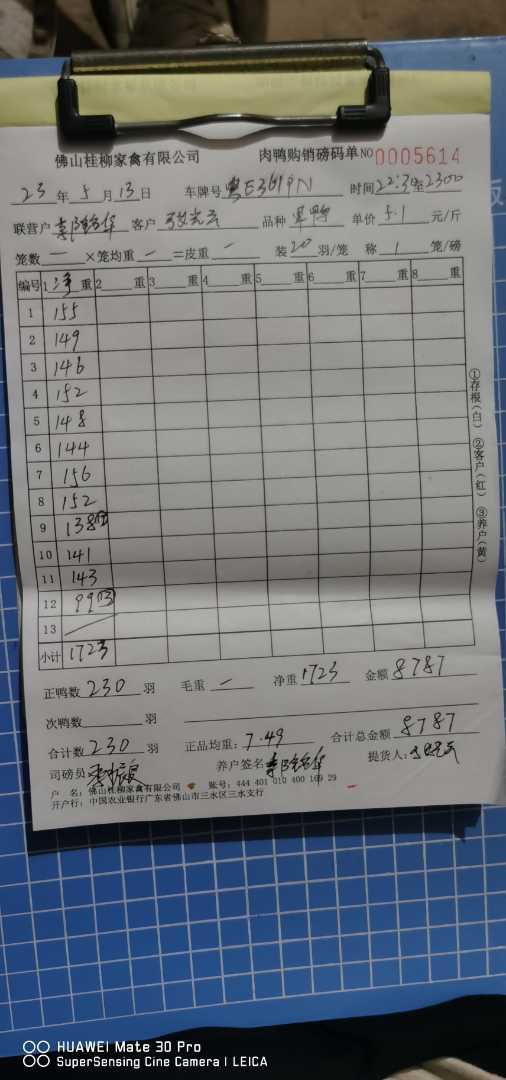 佛山桂柳家禽有限公司 肉鸭购销磅码单 NO 0005614
23 年 5 月 13 日 车牌号 粤E361PN 时间 22:30至2300
联营户 客户 品种 单价 5.1 元/斤
笼数 一 ×笼均重 一 =皮重 一 装 20 羽/笼 称 1 笼/磅
编号 1 净 重 2 重 3 重 4 重 5 重 6 重 7 重 8 重
1 155
2 149
3 146
4 152
5 148
6 144
7 156
8 152
9 138
10 141
11 143
12 99
13
小计 1723
①存根(白) ②客户(红) ③养户(黄)
正鸭数 230 羽 毛重 一 净重 1723 金额 8787
次鸭数 羽
合计数 230 羽 正品均重: 7.49 合计总金额 8787
司磅员 养户签名 提货人:
户 名: 佛山桂柳家禽有限公司 账号: 444 401 010 400 169 29
开户行: 中国农业银行广东省佛山市三水区三水支行
HUAWEI Mate 30 Pro
SuperSensing Cine Camera | LEICA